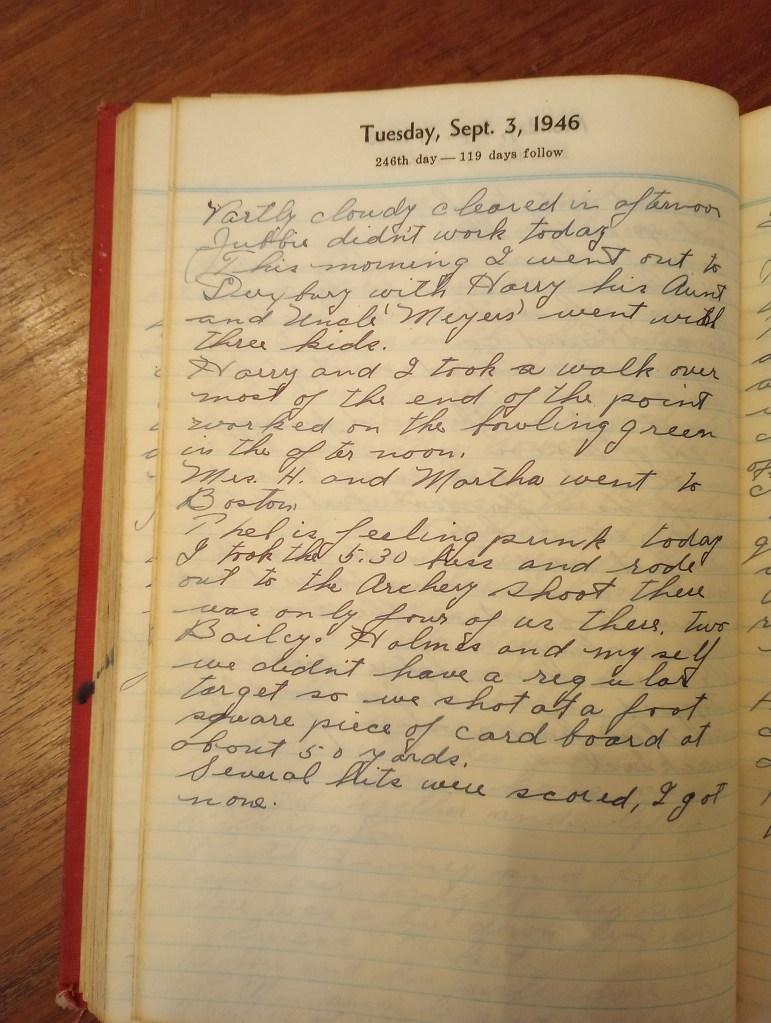 Tuesday, Sept. 3, 1946
246th day — 119 days follow
Partly cloudy cleared in afternoon
didn't work today
(This morning I went out to
Duxbury with Harry his Aunt
and Uncle 'Meyers' went with
three kids.
Harry and I took a walk over
most of the end of the point
worked on the bowling green
in the after noon.
Mrs. H. and Martha went to
Boston
Thel is feeling punk today
I took the 5.30 bus and rode
out to the Archery shoot there
was only four of us there, two
Baileys Holmes and my self
we didn't have a regular
target so we shot at a foot
square piece of card board at
about 50 yards.
Several hits were scored, I got
none.